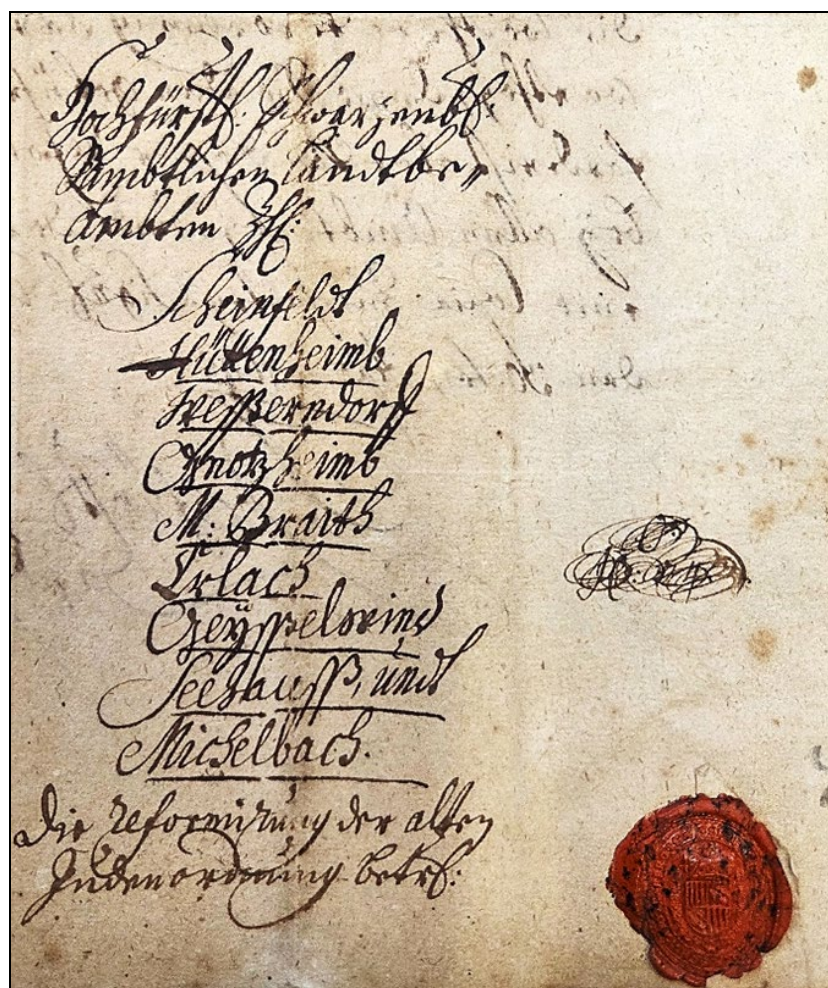 Hochfürstl: Schwarzenbl:
Sämbtlichen Landtbe„
ambten
Scheinfeldt
Hüttenheimb
Weßerndorff
Gnotzheimb
M: Braith
Erlach
Geÿßelwind
Seehauß, undt
Michelbach.
Die reformirung der alten
Judenordnung betrl: